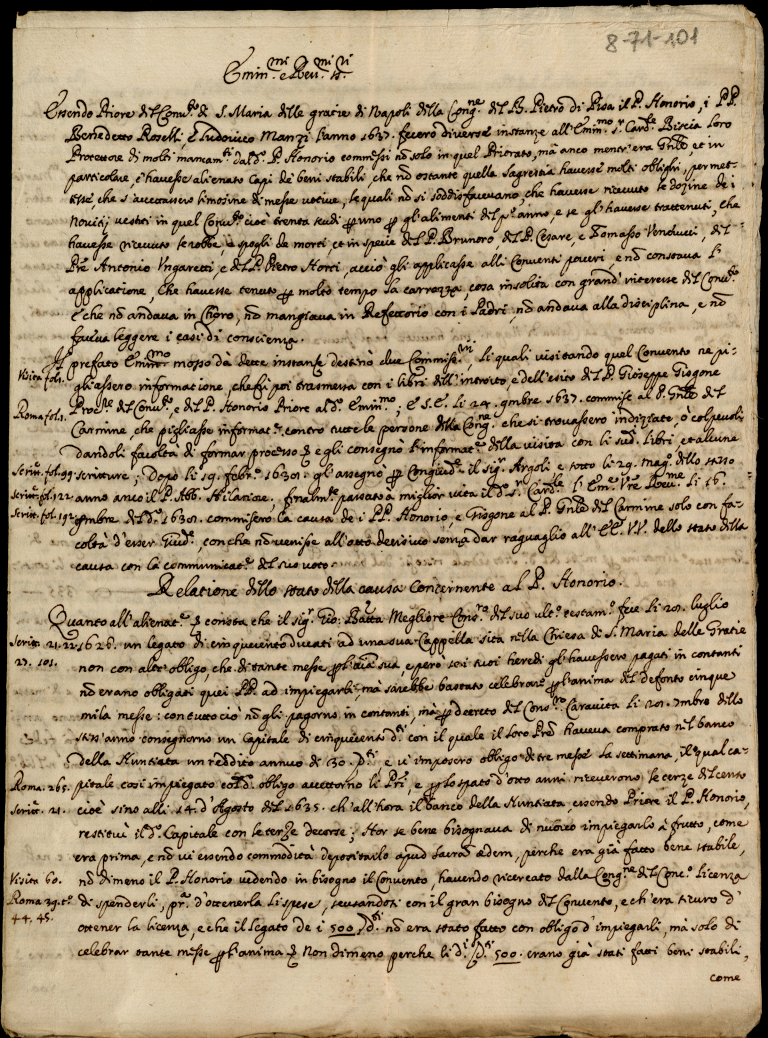 8-71-101
Emin.mi e Rev.mi S.ri
Essendo Priore del Conv.to di S. Maria delle gratie di Napoli della Cong.ne del B. Pietro di Pisa il P. Honorio, i PP.
Benedetto Roselli, e Ludovico Manzi l'anno 1637. fecero diverse instanze all'Emin.mo s.r Card.le Biscia loro
Protettore di molti mancam.ti dal d.o P. Honorio commessi nò solo in quel Priorato, mà anco mentr'era Gn̄le et in
particolare, c'havesse alienato Capi de beni stabili, che nò ostante quella Sagrestia havesse molti oblighi, permet-
tesse, che s'accettassero limosine di messe votive, le quali nò si soddisfacevano, che havesse ricevuto le dozine de i
Novitij vestiti in quel Conv.to cioè trenta scudi p uno p gl'alimenti del p.o anno, e se gl'havesse trattenuti, che
havesse ricevuto le robbe, e spogli de morti, et in specie del P. Brunoro, del P. Cesare, e Tomasso Venducci, del
P̄re Antonio Ungaretti, e del P. Pietro Horti, acciò gl'applicasse alli Conventi poveri e nò constava l'
applicatione, che havesse tenuto p molto tempo la carrozza, cosa insolita con grand'interesse del Conv.to
E che nò andava in Choro, nò mangiava in Refettorio con i Padri, nò andava alla disciplina, e nò
faceva leggere i casi di conscienza.
Il prefato Emin.mo mosso dà dette instanze destinò due Commiss.rij, li quali visitando quel Convento ne pi-
Visita fol. 1.
gliassero informatione, che fù poi trasmessa con i libri dell'introito, e dell'esito del P. Gioseppe Gisgone
Roma fol. 1.
Proc.re del Conv.to, e del P. Honorio Priore al d.o Emin.mo; E S. E. li 24. 9mbre 1637. commise al P. Gn̄le del
Carmine, che pigliasse informat.e contro tutte le persone della Cong.ne che si trovassero indiziate, ò colpevoli
dandoli facoltà di formar processo & e gli consegnò l'informat.e della visita con li sud.i libri, et alcune
Scritt. fol. 99.
scritture; Dopo li 19. febr.o 1638. gl'assegnò p Congiud.e il sig.r Argoli e sotto li 29. Mag.o dello stesso
Scritt. fol. 122.
anno anco il P. Abb. Hilarione, finalm.te passato à miglior vita il d.o s.r Card.le l'Em.e V̄re Rev.me li 16.
Scritt. fol. 192.
9mbre del d.o 1638. commisero la causa de i PP. Honorio, e Gisgone al P. Gn̄le del Carmine solo con fa-
coltà d'esser Giud.e, con che nò venisse all'atto decisivo senza dar raguaglio all'EE. VV. dello stato della
causa con la communicat.e del suo voto.
Relatione dello stato della causa concernente al P. Honorio.
Quanto all'alienat.e & consta che il sig.r Gio: Batta Megliore Cons.ro del suo ult.o testam.o fece li 28. luglio
Scritt. 21. 22.
1626. un legato di cinquecento ducati ad una sua Cappella sita nella Chiesa di S. Maria delle Gratie
27. 101.
non con altr'obligo, che di tante messe p l'aīa sua, e però se i suoi heredi gl'havessero pagati in contanti
nò erano obligati quei PP. ad impiegarli, mà sarebbe bastato celebrare p l'anima del defonto cinque
mila messe: con tutto ciò nò gli pagorno in contanti, mà p decreto del Cons.ro Caravita li 20. 7mbre dello
stess'anno consegnorno un Capitale di cinquecento d.ti con il quale il loro P̄re haveva comprato nel banco
della Nuntiata un reddito annuo di 30. d.ti e vi imposero obligo di tre messe la settimana, il qual ca-
Roma. 265.
pitale così impiegato col d.o obligo accettorno li P̄ri, e p lo spatio d'otto anni riceverono le terze del cento
Scritt. 21.
cioè sino alli 14. d'Agosto del 1635. ch'all'hora il banco della Nuntiata, essendo Priore il P. Honorio,
restituì il d.o Capitale con le terze decorse; Hor se bene bisognava di nuovo impiegarlo à frutto, come
era prima, e nò vi essendo commodità depositarlo apud sacram ædem, perche era già fatto bene stabile,
Visita 60.
nò dimeno il P. Honorio vedendo in bisogno il Convento, havendo ricercato dalla Cong.ne del Conc.o licenza
Roma 29. t.o
di spenderli, p.a d'ottenerla li spese, scusandosi con il gran bisogno del Convento, e ch'era sicuro d'
44. 45.
ottener la licenza, e che il legato de i 500. d.ti nò era stato fatto con obligo d'impiegarli, mà solo di
celebrar tante messe p l'anima & Non dimeno perche li d.i d.ti 500. erano già stati fatti beni stabili,
come